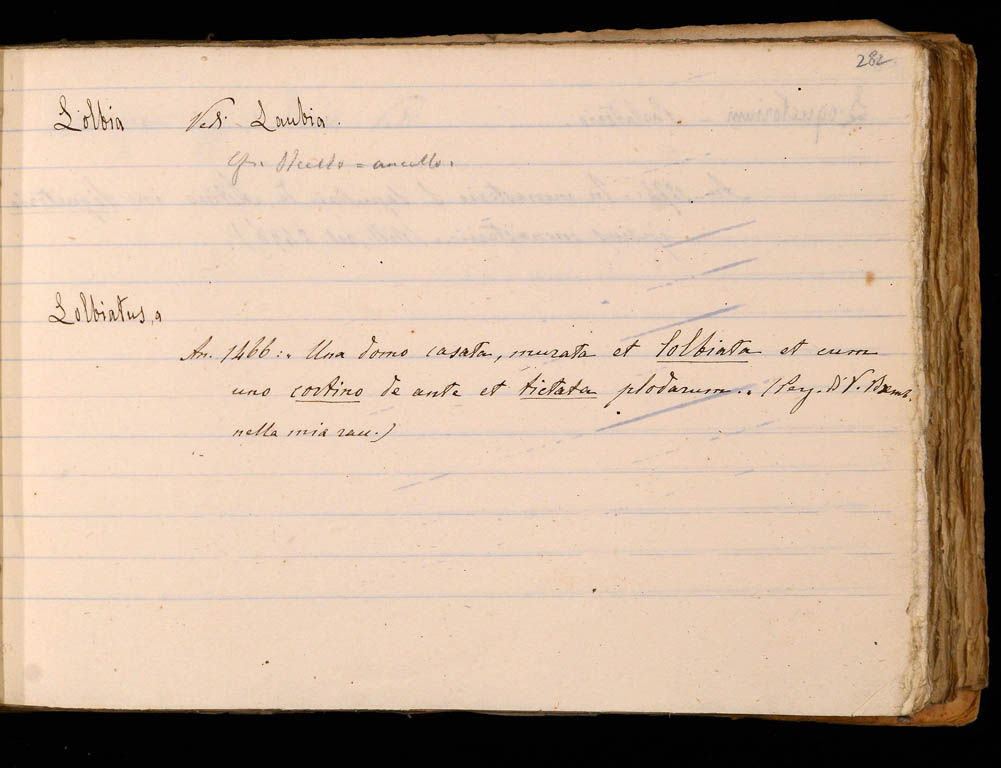 282
Lolbia Vedi Laubia.
Cfr. = ancello.
Lolbiatus, a
An. 1466: „ Una domo casata, murata et lolbiata et cum
uno cortino de ante et tictata plodarum. „ (Perg. Di V. Bremb.
nella mia rac.)